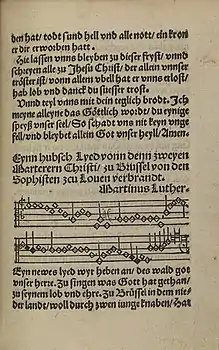 den hat/ todt sund hell vnd alle nott/ ein kron
er dir erworben hatt.
Hie lassen vnns bleyben zu dieser frist/ vnnd
schreyen alle zu Jhesu Christ/ der allein vnnser
tröster ist/ vonn allem vbell hat er vnns erlost/
hab lob vnd danck du suesser trost.
Vnnd teyl vnns mit dein teglich brodt. Ich
meyne alleyne das Göttlich wordt/ du eynige
speyß vnser seel/ So schadt vns nit key vnge
fell/ vnd bleybet allein Got vnser heyll/ Amen.
Eynn hubsch Lyed vonn denn zweyen
Marterern Christi/ zu Brüssel von den
Sophisten zcu Louen verbrandt.
Martinus Luther.
Eyn newes lyed wyr heben an/ des wald got
vnser herre. Zu singen was Gott hat gethan/
zu seynem lob vnd ehre. Zu Brüssel in dem nie-
der landt/ woll durch zwen iunge knaben/ Hat